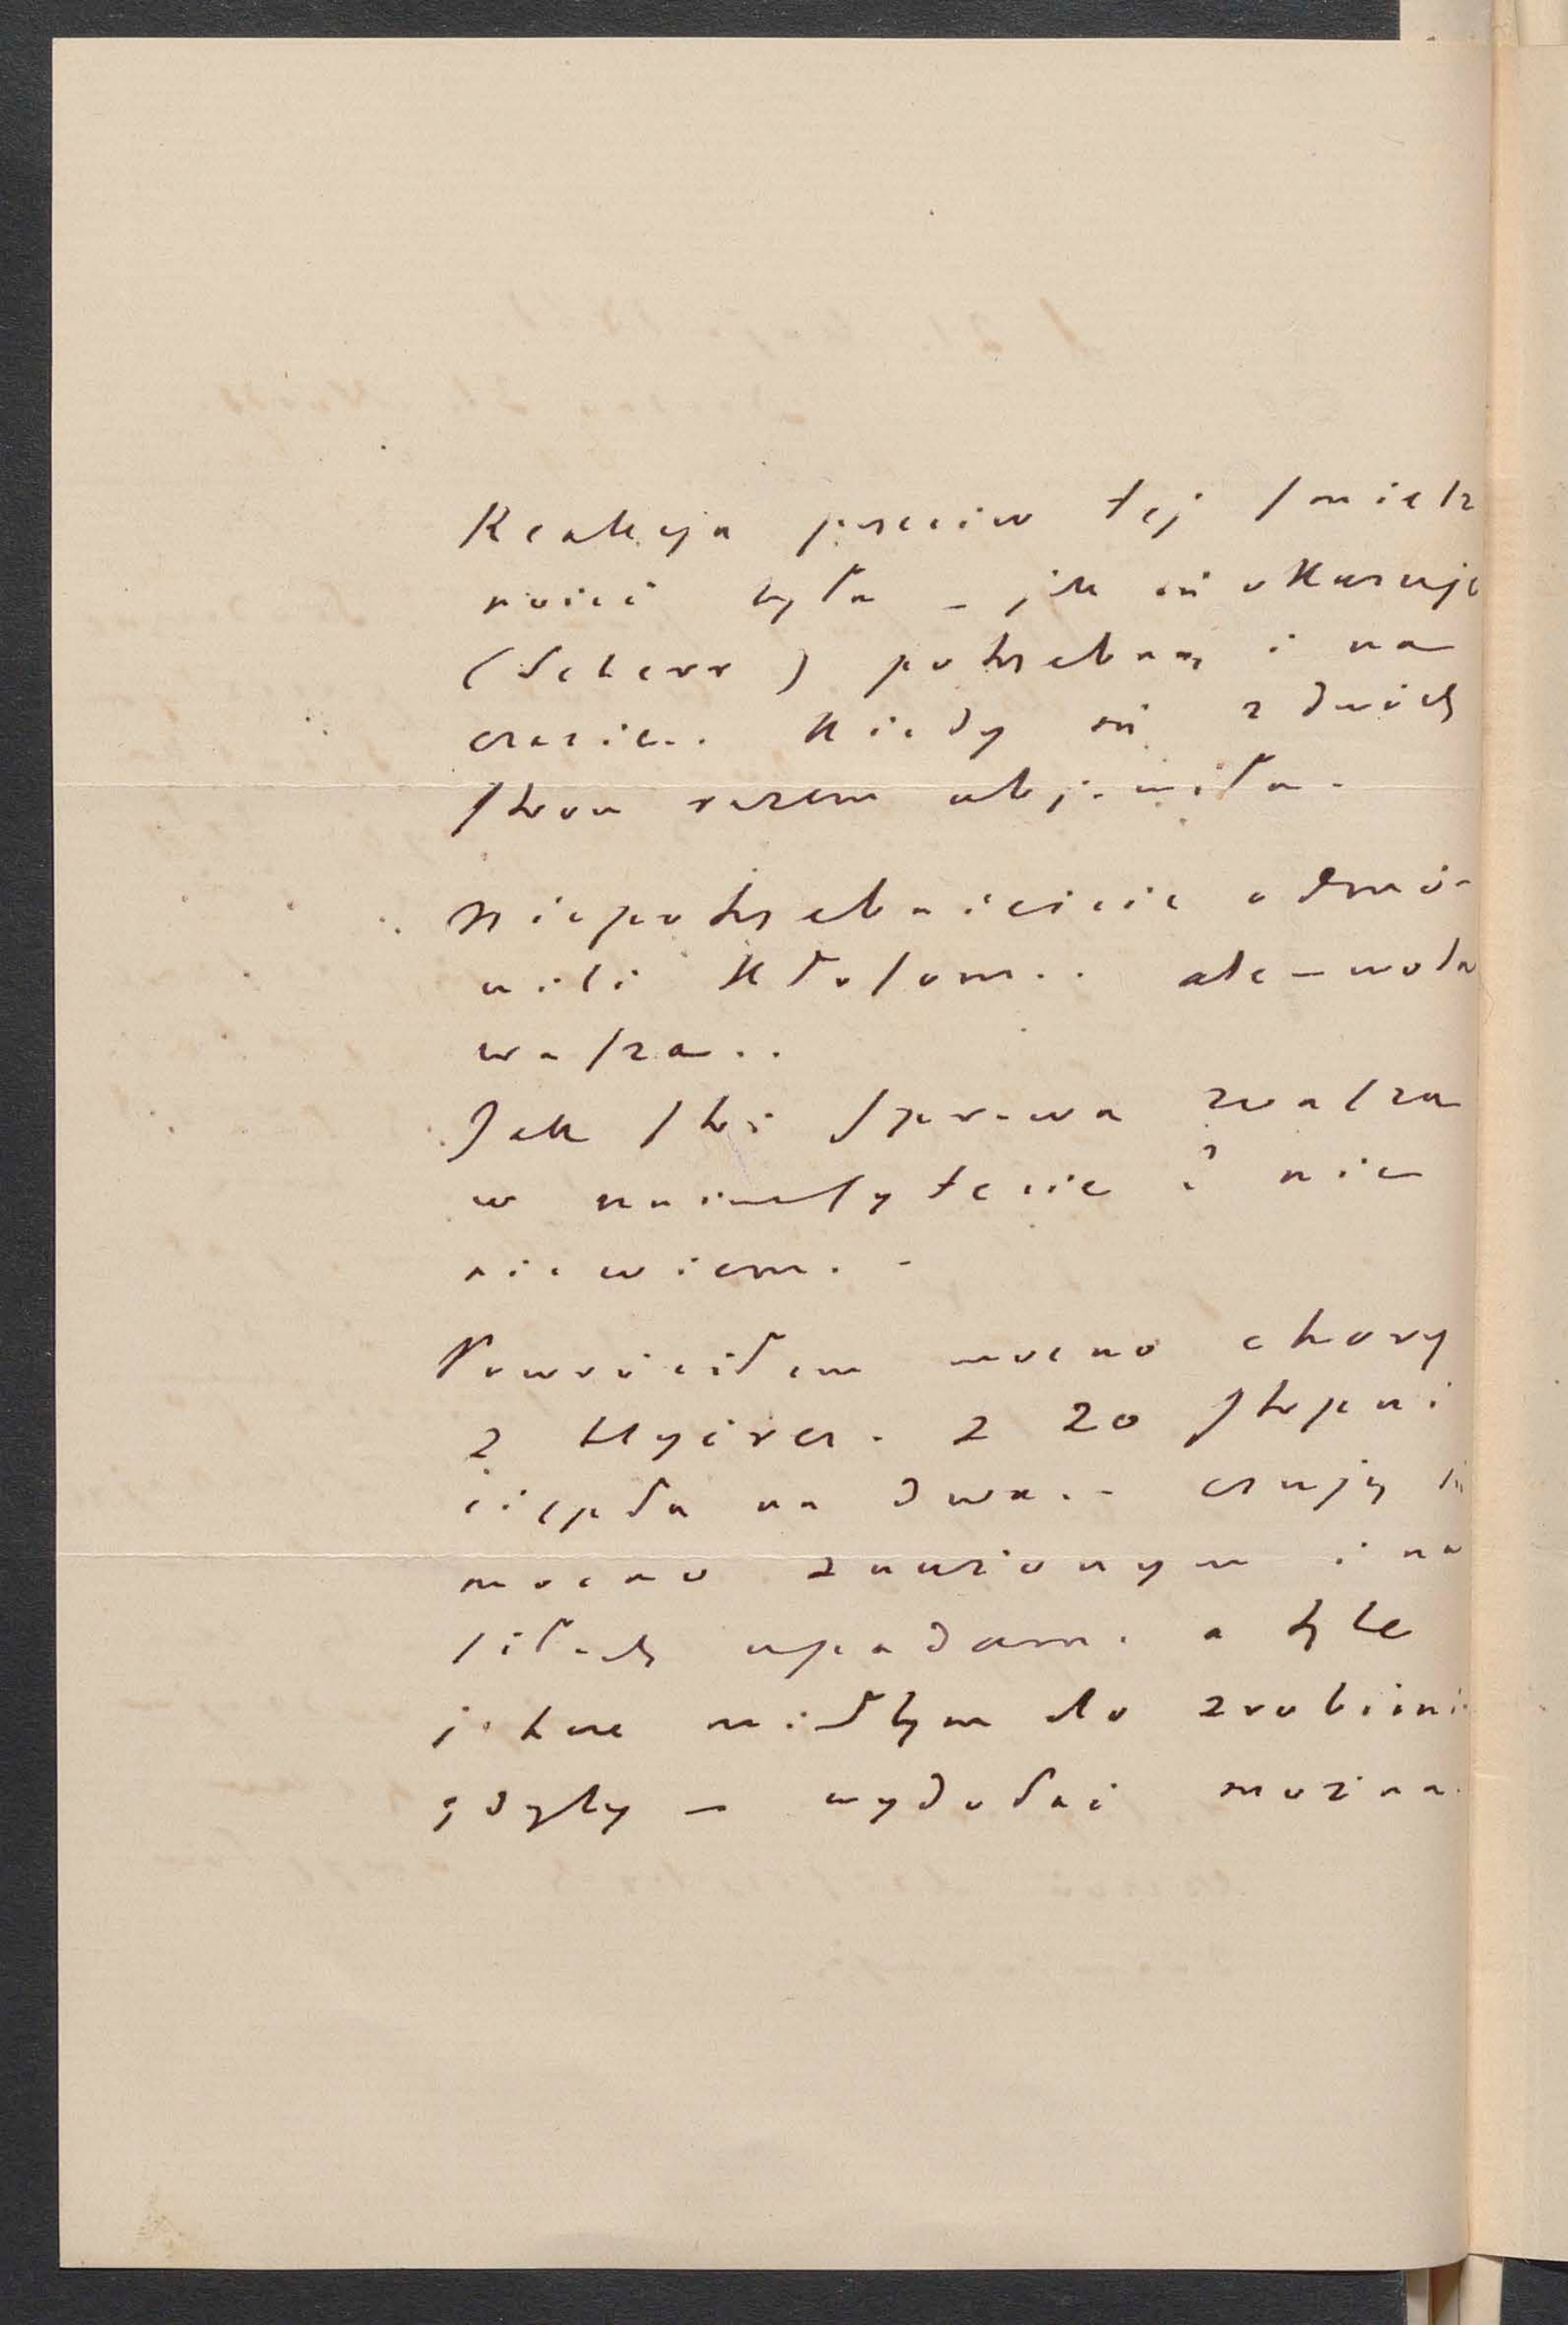 Reakcja przeciw tej śmiesz
ności była – jak się okazuje
(Scherr) potrzebną i na
czasie.. Kiedy się z dwóch
stron razem objawiła.
Niepotrzebnieście odmó-
wili Kłosom.. ale – wola
wasza..
Jak stoi sprawa wasza
w uniwersytecie? nic
niewiem. -
Powróciłem mocno chory
z Hyères. z 20 stopni
ciepła na dwa.- czuję się
mocno znużonym i na
siłach upadam. a tyle
jeszcze miałbym do zrobieni
gdyby – wydołać można.